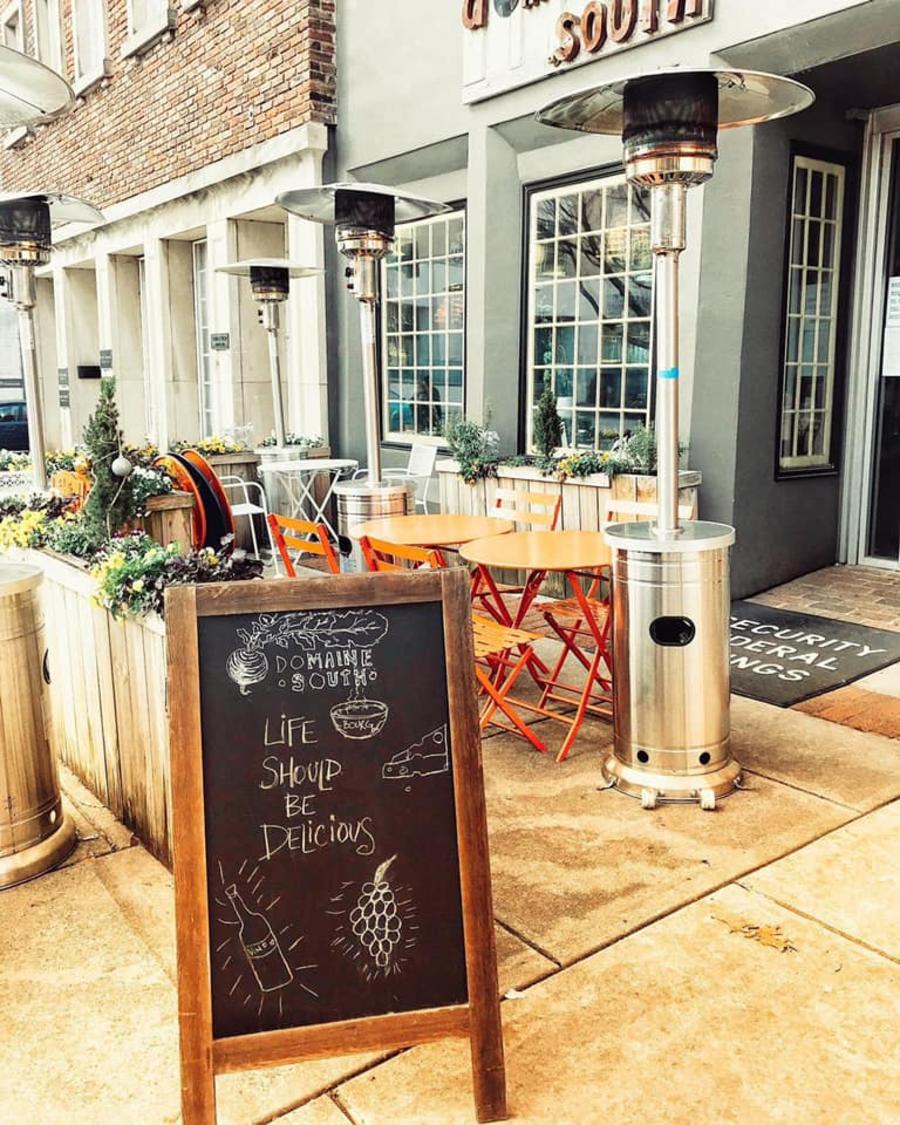 SOUTH
DOMAINE
SOUTH
BOURG
LiFE
SHOULD
BE
DELiCiOUS
VINO
SECURITY
FEDERAL